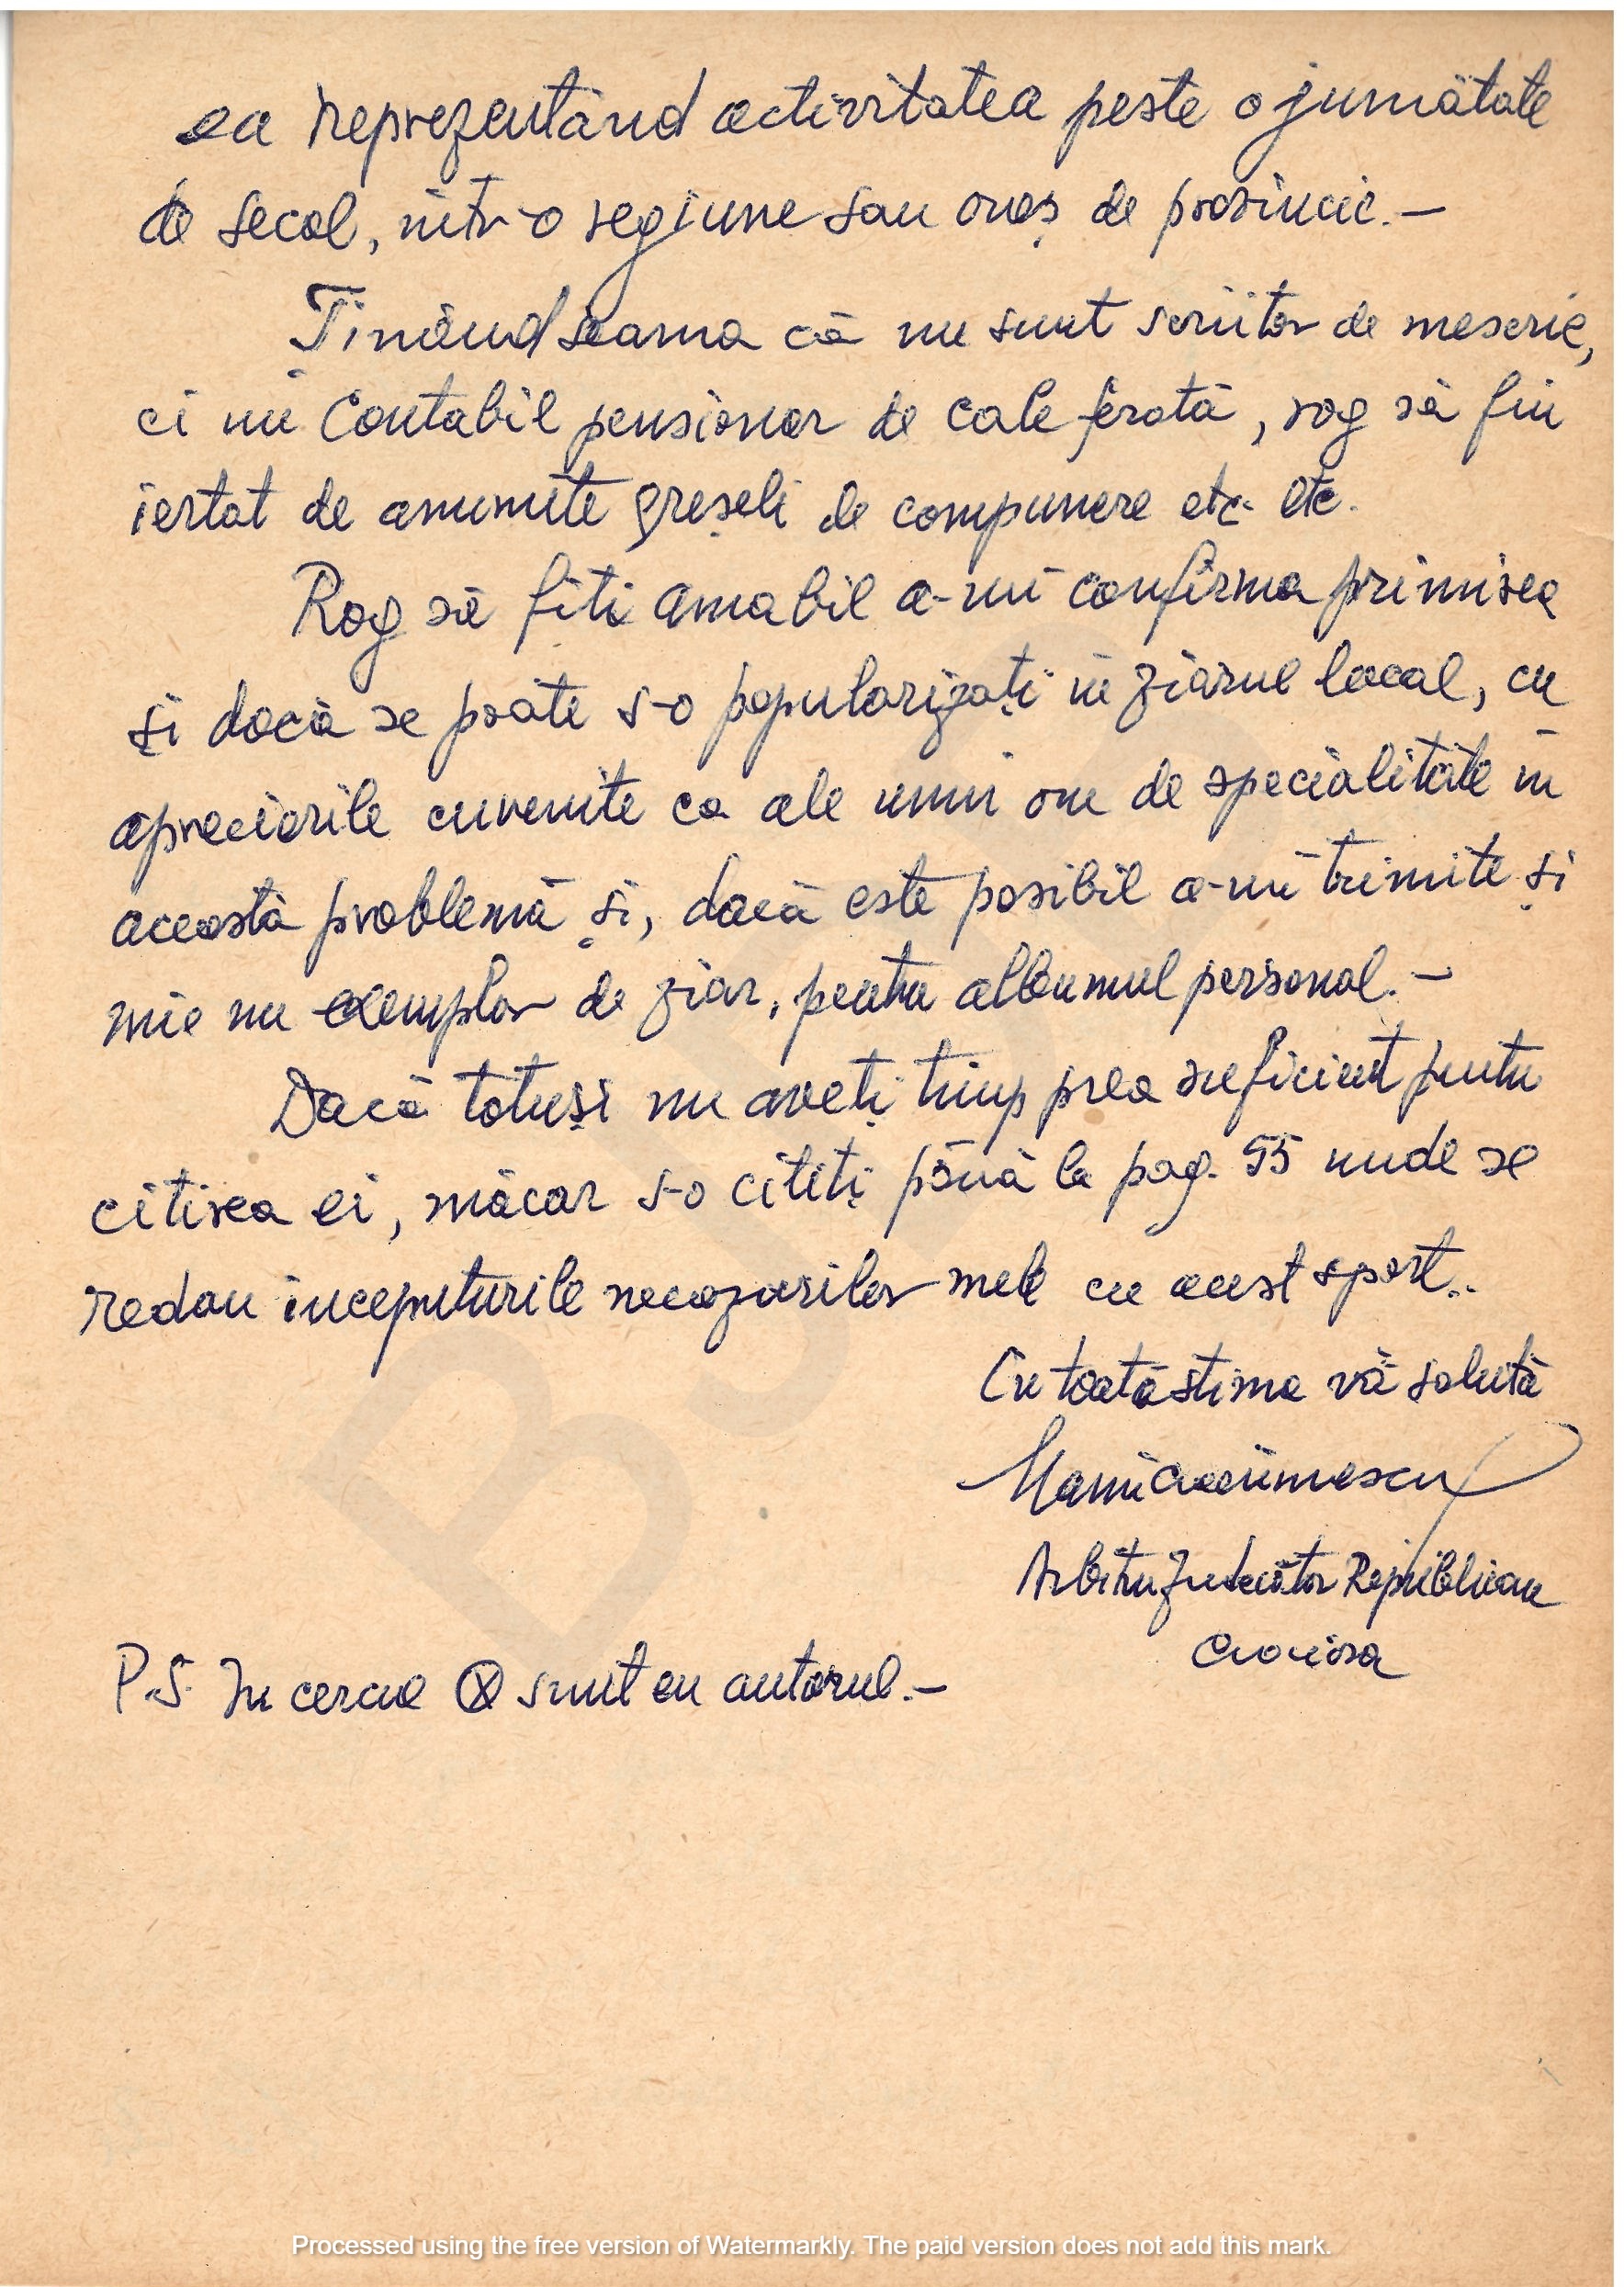 ea reprezentând activitatea peste o jumătate
de secol, într-o regiune sau oraș de provincie.-
Ținând seama că nu sunt scriitor de meserie,
ci un Contabil pensionar de cale ferată, rog să fiu
iertat de anumite greșeli de compunere etc. etc.
Rog să fiți amabil a-mi confirma primirea
și dacă se poate s-o popularizați în ziarul local, cu
aprecierile cuvenite ca ale unui om de specialitate în
această problemă și, dacă este posibil a-mi trimite și
mie un exemplar de ziar, pentru albumul personal.-
Dacă totuși nu aveți timp prea suficient pentru
citirea ei, măcar s-o citiți până la pag. 55 unde se
redau începuturile necazurilor mele cu acest sport..
Cu toată stima vă salută
Arbitru Judecător Republican
Craiova
P.S. In cercul Ⓧ sunt eu autorul.-
Processed using the free version of Watermarkly. The paid version does not add this mark.